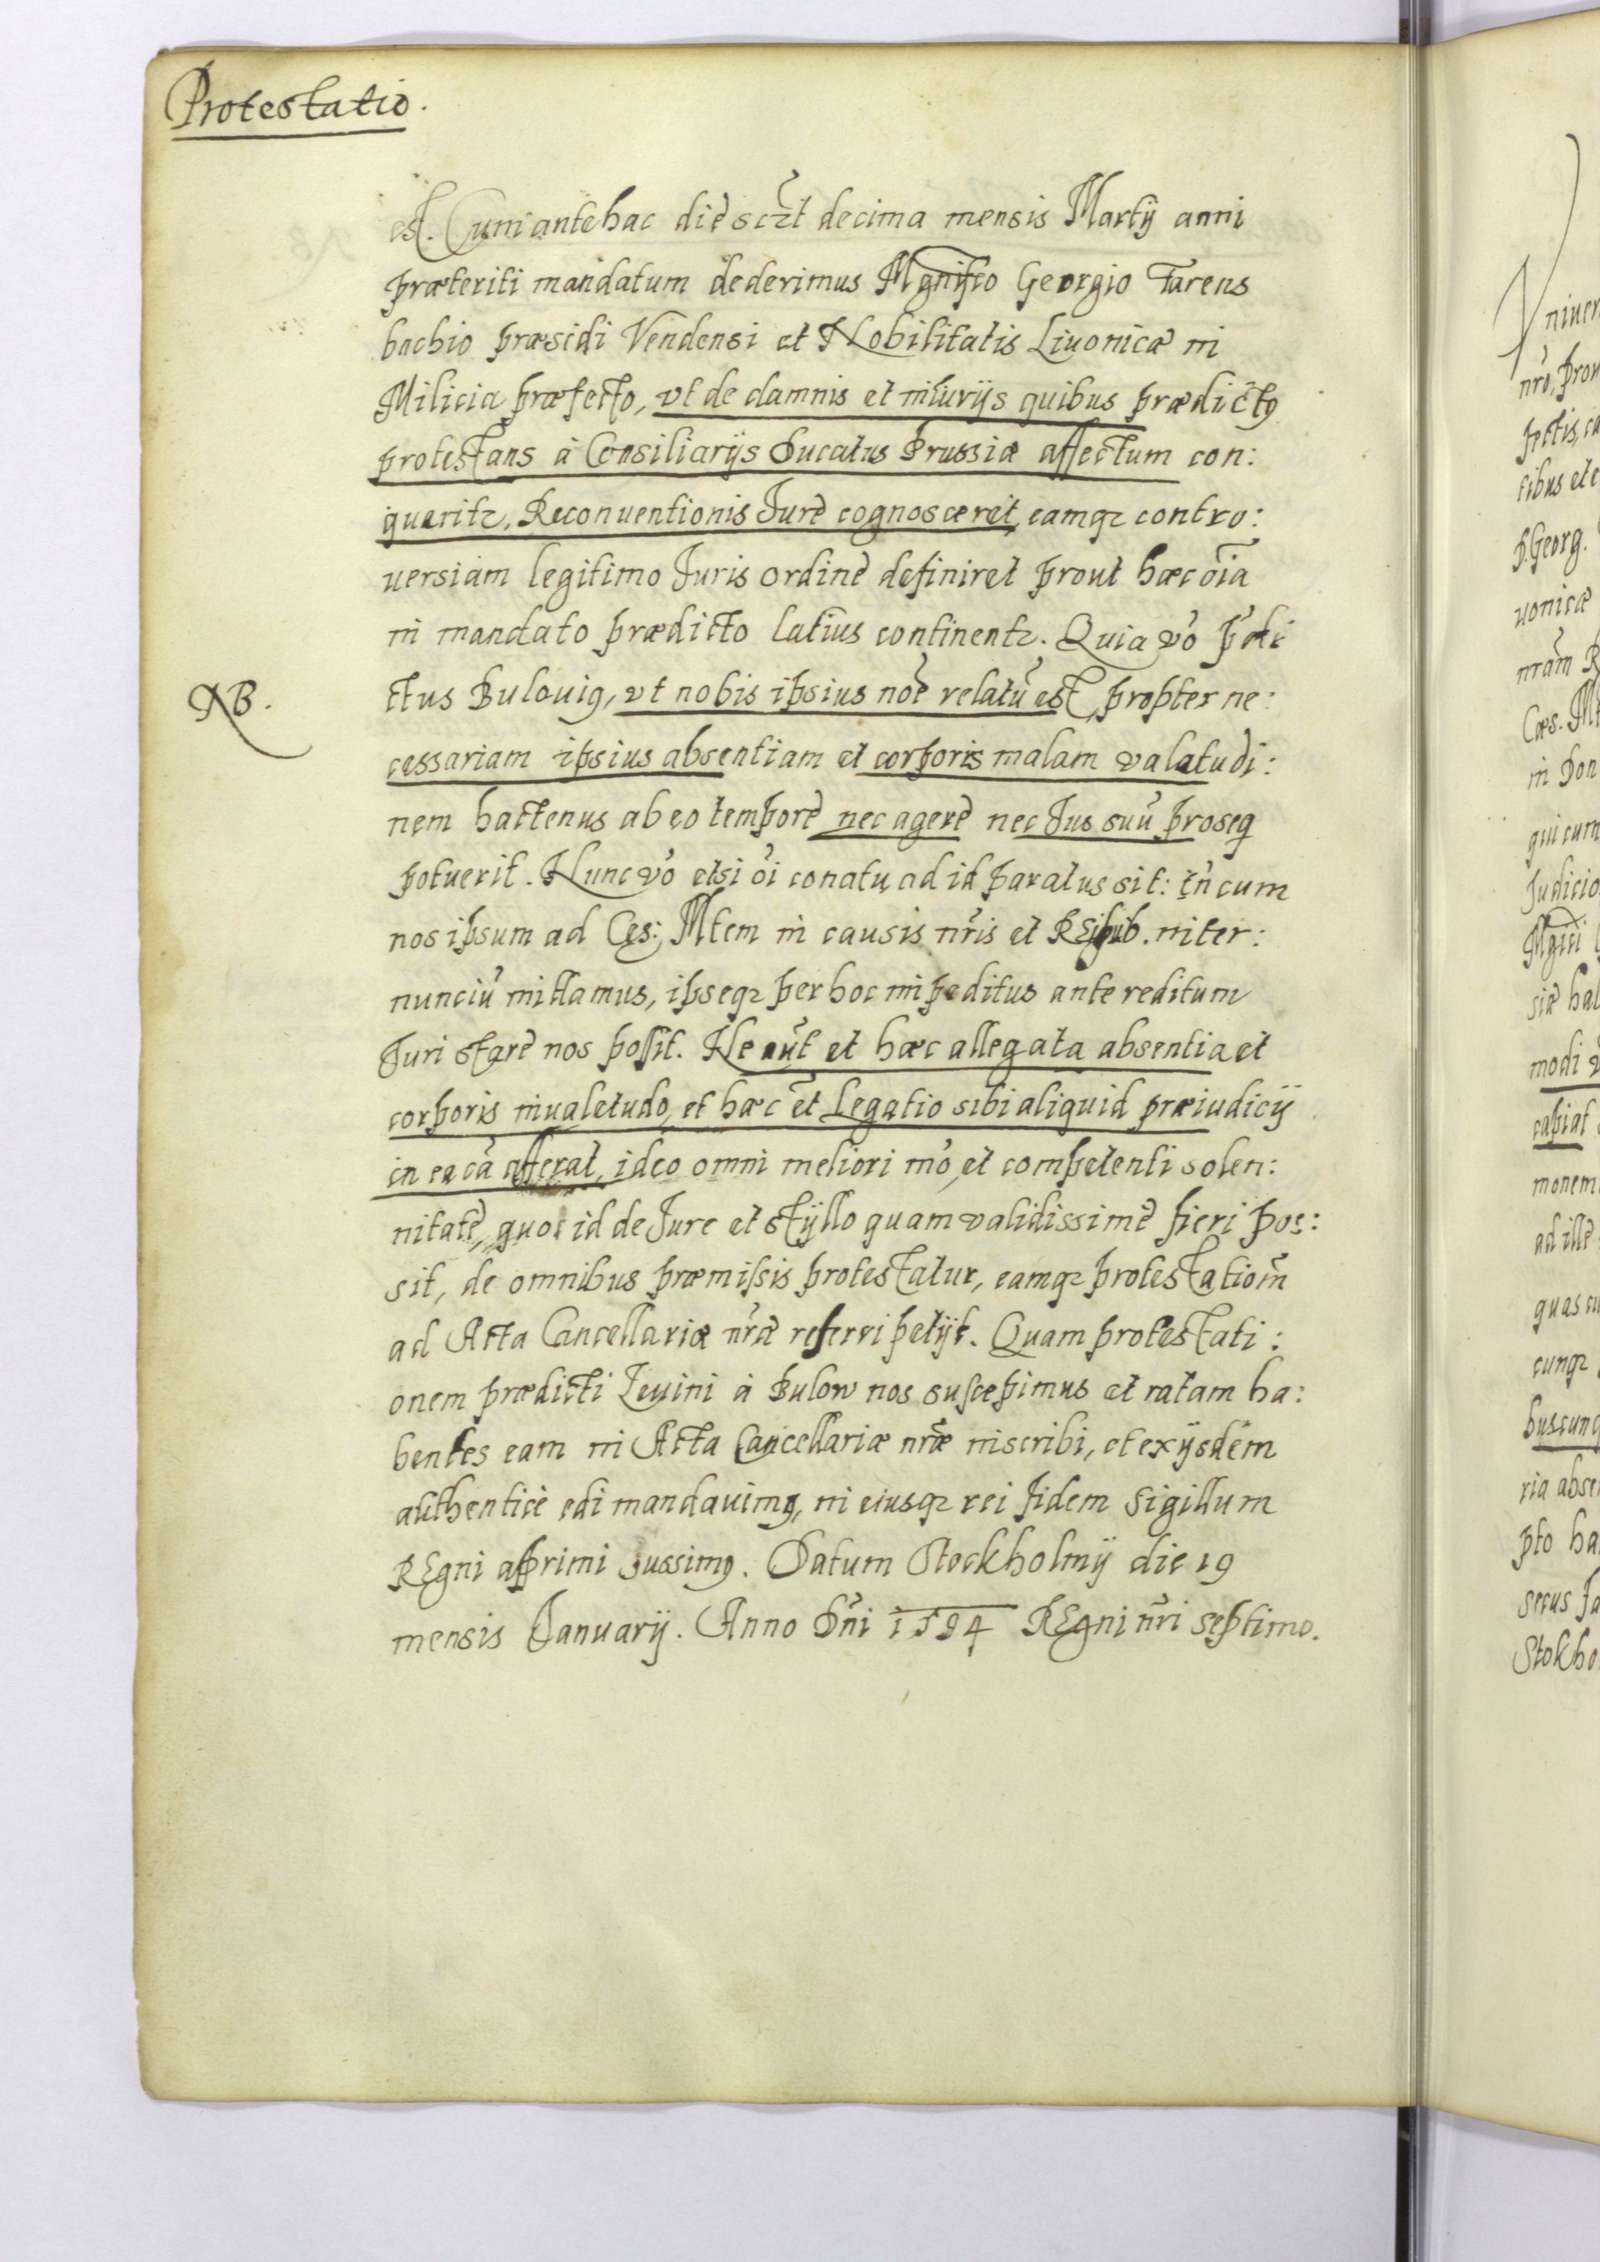 Protestatio.
est. Cum antehac die sczt decima mensis Martij anni
præteriti mandatum dederimus Mgnifco Georgio Tarens
bachio præsidi Vendensi et Nobilitatis Liuonicæ in
Milicia præfecto, vt de damnis et iniurijs quibus prædictq
protestans à Consiliarijs Ducatus Prussiæ affectum con:
queritz, Reconuentionis Jure cognosceret, eamqz contro:
uersiam legitimo Juris ordine definiret prout hæc oĩa
in mandato prædicto latius continentz. Quia võ p̃di
NB.
ctus Bulouiq, vt nobis ipsius noẽ relatũ est, propter ne:
cessariam ipsius absentiam et corporis malam valatudi:
nem hactenus ab eo tempore nec agere nec Jus suũ proseq
potuerit. Nunc võ etsi õi conatu ad id paratus sit: tñ cum
nos ipsum ad Cęs: Mtem in causis nr̃is et REipub. inter:
nunciũ mittamus, ipseqz per hoc impeditus ante reditum
Juri stare nos possit. Ne aũt et hæc allegata absentia et
corporis inualetudo, et hæc et̃ Legatio sibi aliquid præiudicij
in ea cã afferat, ideo omni meliori mõ, et competenti solen:
nitate, quoi id de Jure et stÿllo quam validissime fieri pos:
sit, de omnibus præmissis protestatur, eamqz protestatiom̃
ad Acta Cancellariæ nr̃æ referri petijt. Quam protestati:
onem prædicti Leuini à Bulow nos suscepimus et ratam ha:
bentes eam in Acta Cancellariæ nr̃æ inscribi, et ex ijsdem
authentice edi mandauimq, in eiusqz rei fidem Sigillum
REgni apprimi Jussimq. Datum Stockholmij die 19
mensis Januarij. Anno Dñi 1594 REgni nr̃i septimo.